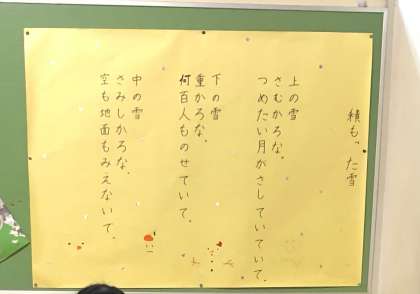 積もった雪
上の雪
さむかろな。
つめたい月がさしていていて。
下の雪
重かろな。
何百人ものせていて。
中の雪
さみしかろな。
空も地面もみえないで。